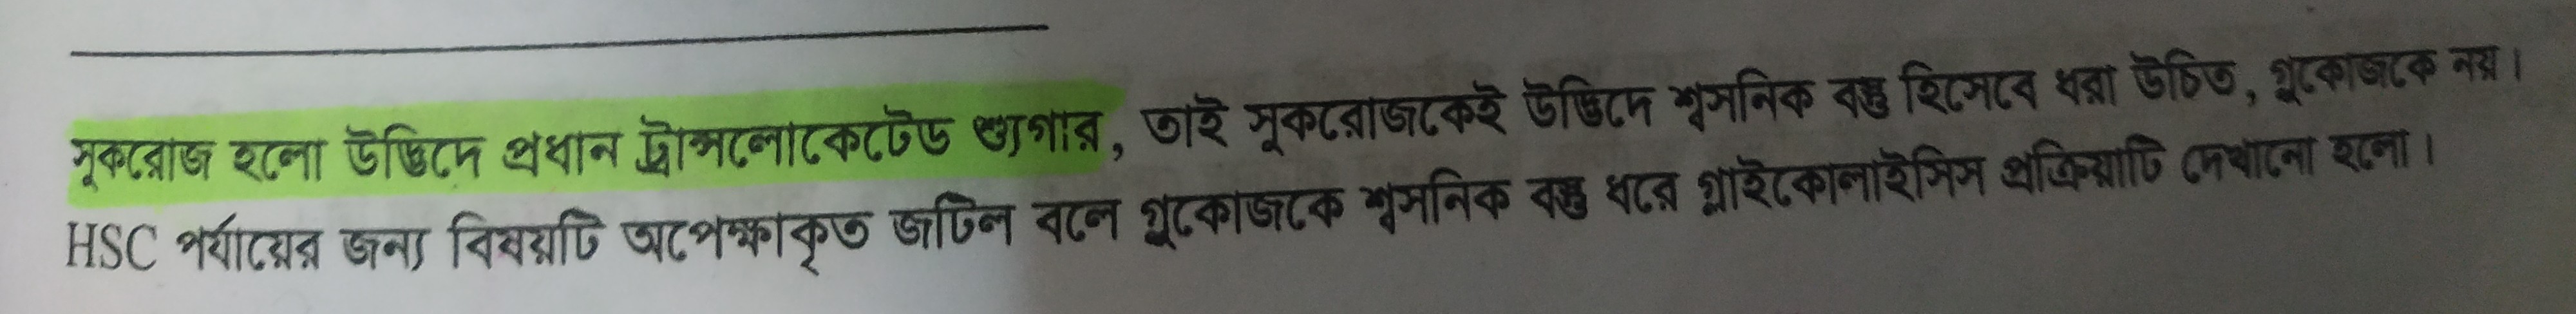 সুকরোজ হলো উদ্ভিদে প্রধান ট্রান্সলোকেটেড শ্যুগার, তাই সুকরোজকেই উদ্ভিদে শ্বসনিক বস্তু হিসেবে ধরা উচিত, গ্লুকোজকে নয়।
HSC পর্যায়ের জন্য বিষয়টি অপেক্ষাকৃত জটিল বলে গ্লুকোজকে শ্বসনিক বস্তু ধরে গ্লাইকোলাইসিস প্রক্রিয়াটি দেখানো হলো।